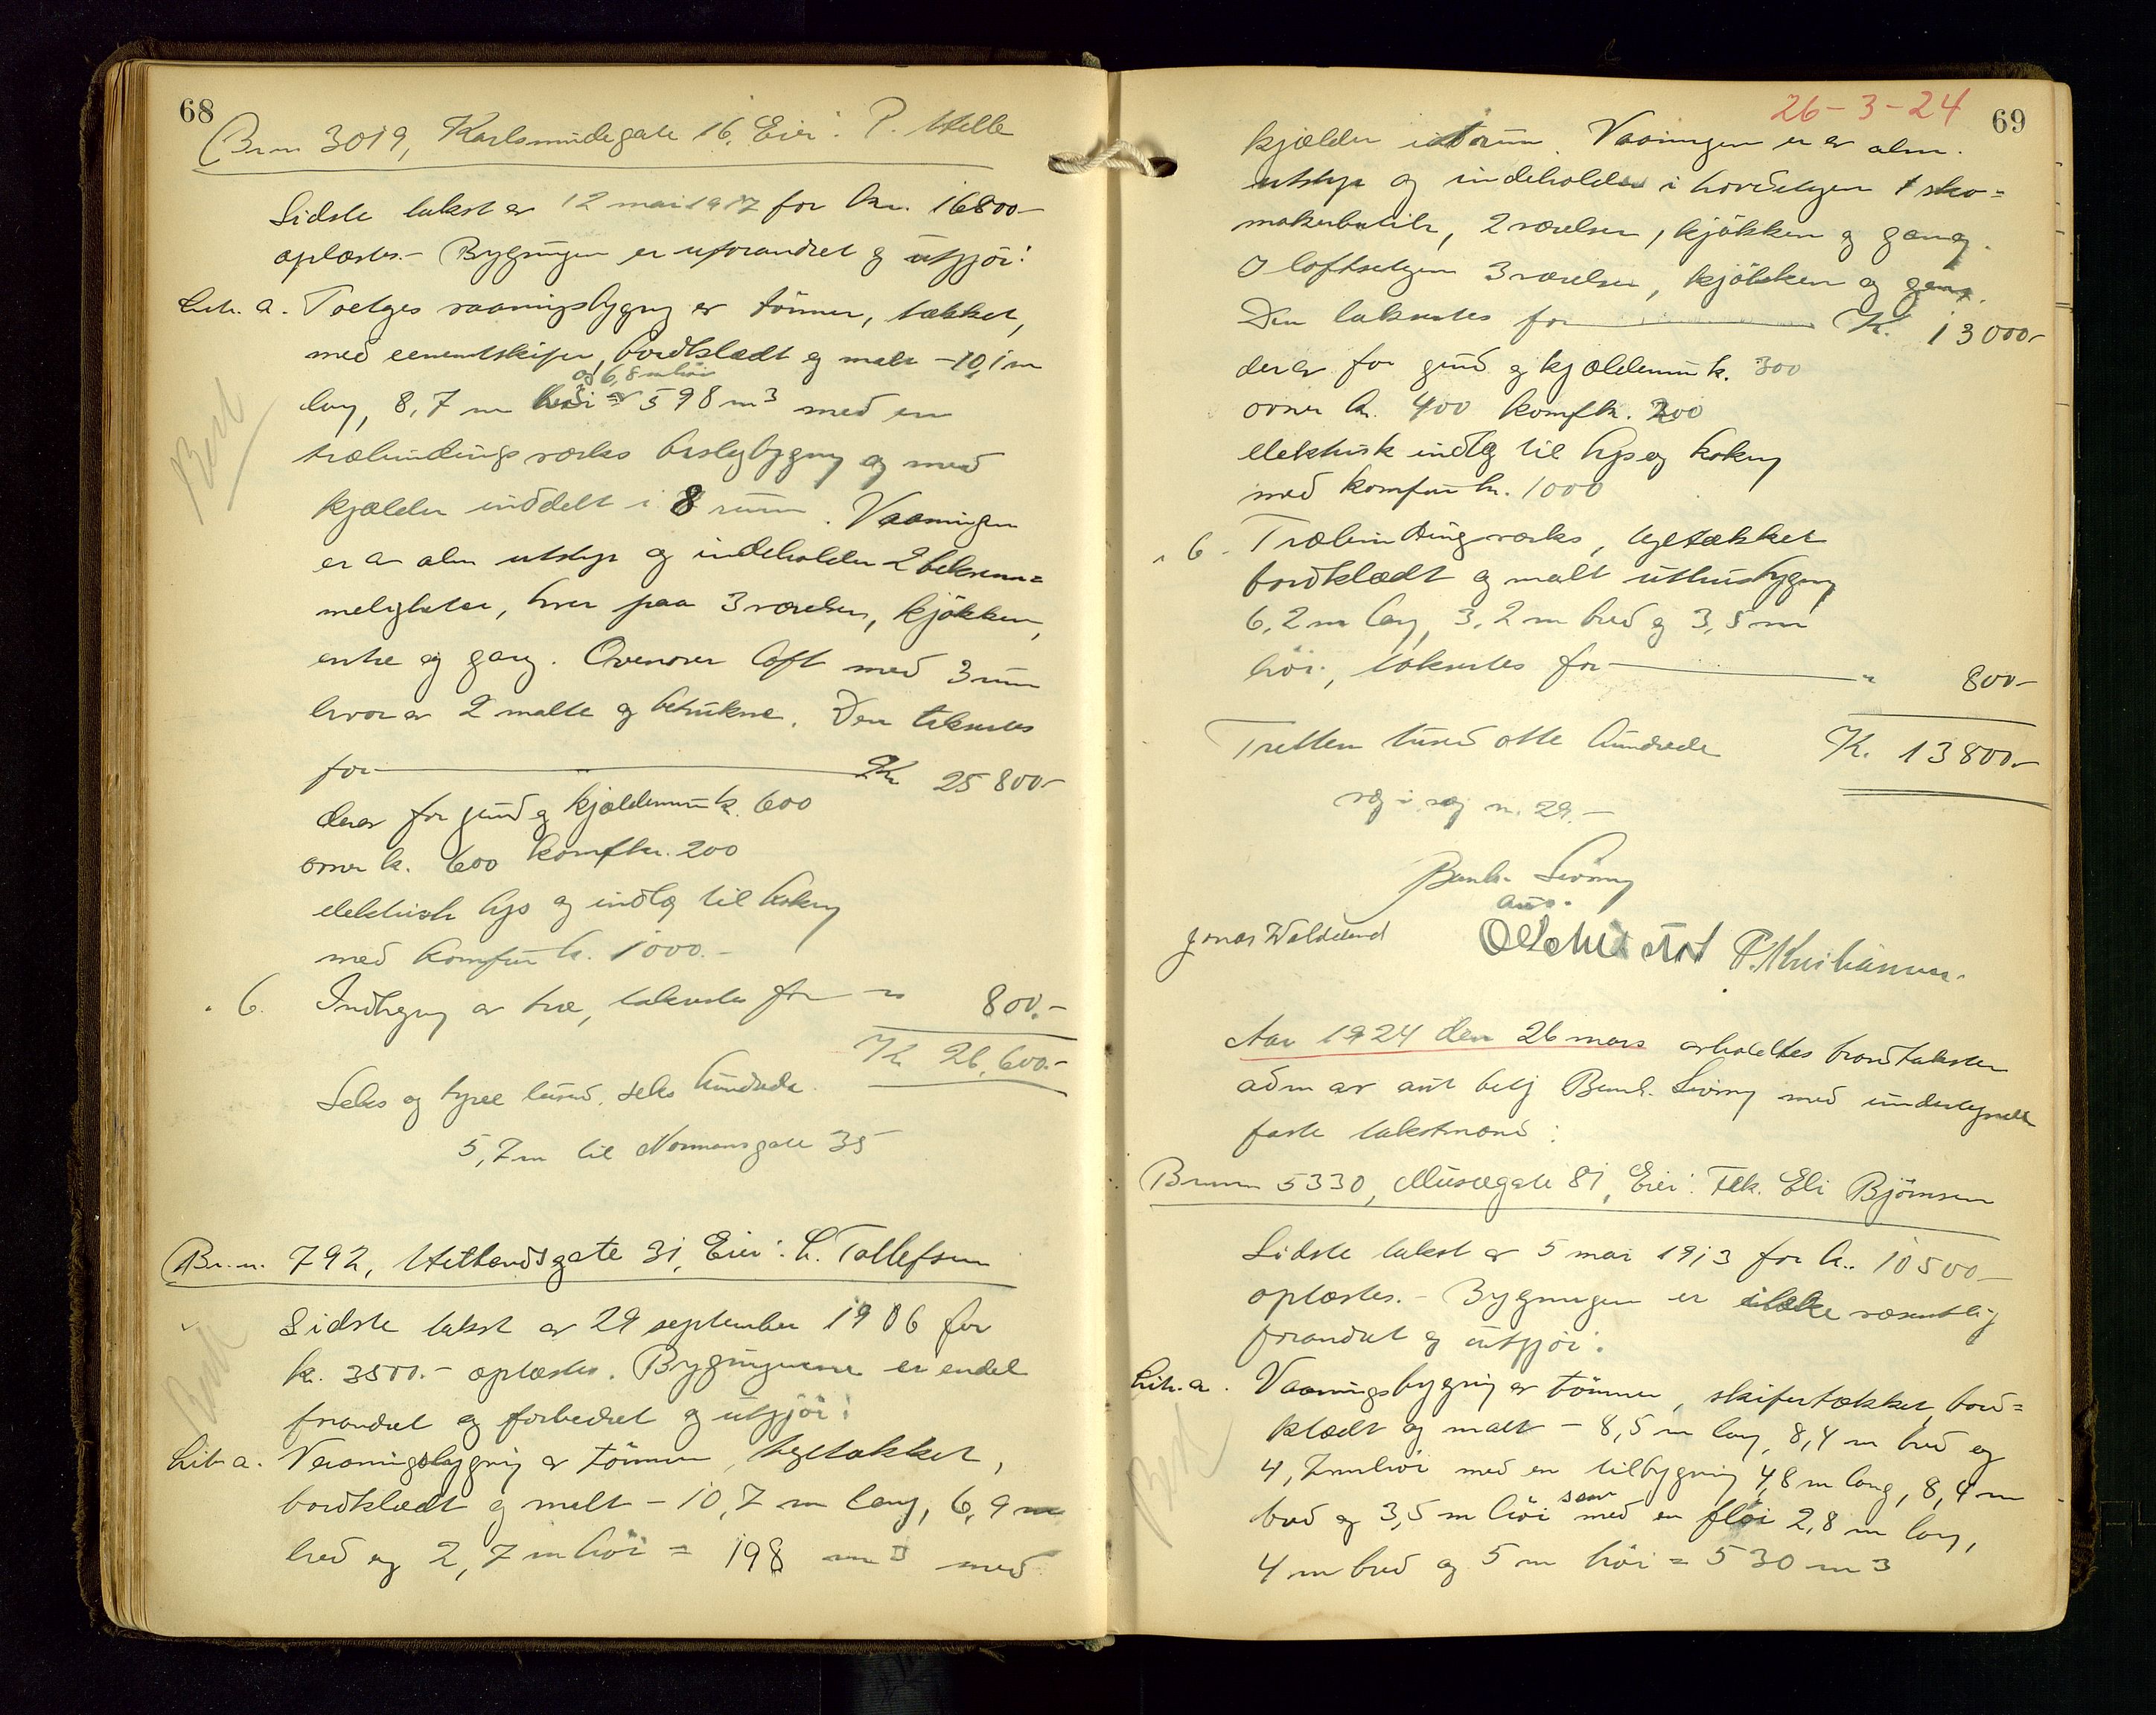 68
Br.n. 3019, Karlsmindegate 16, Eier: P. Helle
Sidste takst av 12 mai 1917 for kr. 16800-
oplæstes.- Bygningen er uforandret og utgjör:
Litr. a. Toetges vaaningsbygng av tömmer, tækket,
med cementskifer, bordklædt og malt - 10,1 m
og 6,8 m höi
lang, 8,7 m = 598 m3 med en
træbindingsverks bislagbygng og med
kjælder inddelt i 8 rum. Vaaningen
er av alm utstyr og indeholder 2 bekvem=
meligheter, hver paa 3 værelser, kjökken,
entre og gang. Ovenover loft med 3 rum
hvorav 2 malte og betrukne. Den takseres
for Kr 25 800-
derav for grund og kjældermur k. 600
ovner k. 600 komf kr. 200
elektrisk lys og indlæg til kokng
med komfur k. 1000.-
" b. Indhegng av træ, takseres for " 800.-
Kr 26.600.-
Seks og tyve tusind, seks hundrede
5,7 m til Normansgate 35
Br.n. 792, Hetlandsgate 31, Eier: L. Tollefsen
Sidste takst av 29 september 1906 for
k. 3500.- oplæstes. Bygningerne er endel
forandret og forbedret og utgjör:
Litr a. Vaaningsbygning av tömmer, tegltækket,
bordklædt og malt - 10,7 m lang, 6,9 m
bred og 2,7 m höi = 198 m3 med
Besl
Besl
26-3-24
69
kjælder i rum. Vaaningen er av alm.
utstyr og indeholder i hovedetagen 1 sko=
makerbutik, 2 værelser, kjökken og gang.
I loftsetagen 3 værelser, kjökken og gang.
Den takseres for K. 13000-
derav for grund og kjældermur k. 300
ovner k. 400 komf k. 200
elektrisk indlæg til lys og kokng
med komfur kr. 1000
" b. Træbindingsverks, tegltækket
bordklædt og malt uthusbygng
6,2 m lang, 3,2 m bred og 3,5 m
höi, takseres for " 800-
Tretten tusind otte hundrede K. 13800.-
29.-
Bernh. Sivong
aut.
Jonas Waldeland O Schi P. Kristiansen.
Aar 1924 den 26 mars avholdtes brandtakster
adm av aut betj Bernh. Sivong med undertegnede
faste takstmænd:
Brumm 5330, Musægate 81, Eier: Frk. Eli Björnsen
Sidste takst av 5 mai 1913 for k.. 10500-
oplæstes.- Bygningen er ikke væsentlig
forandret og utgjör:
Litr. a. Vaaningsbygning av tömmer, skifertækket, bord=
klædt og malt - 8,5 m lang, 8,4 m bred og
4,7 m höi med en tilbygning 4,8 m lang, 8,4 m
bred og 3,5 m höi samt med en flöi 2,8 m lang,
4 m bred og 5 m höi = 530 m3
Besl